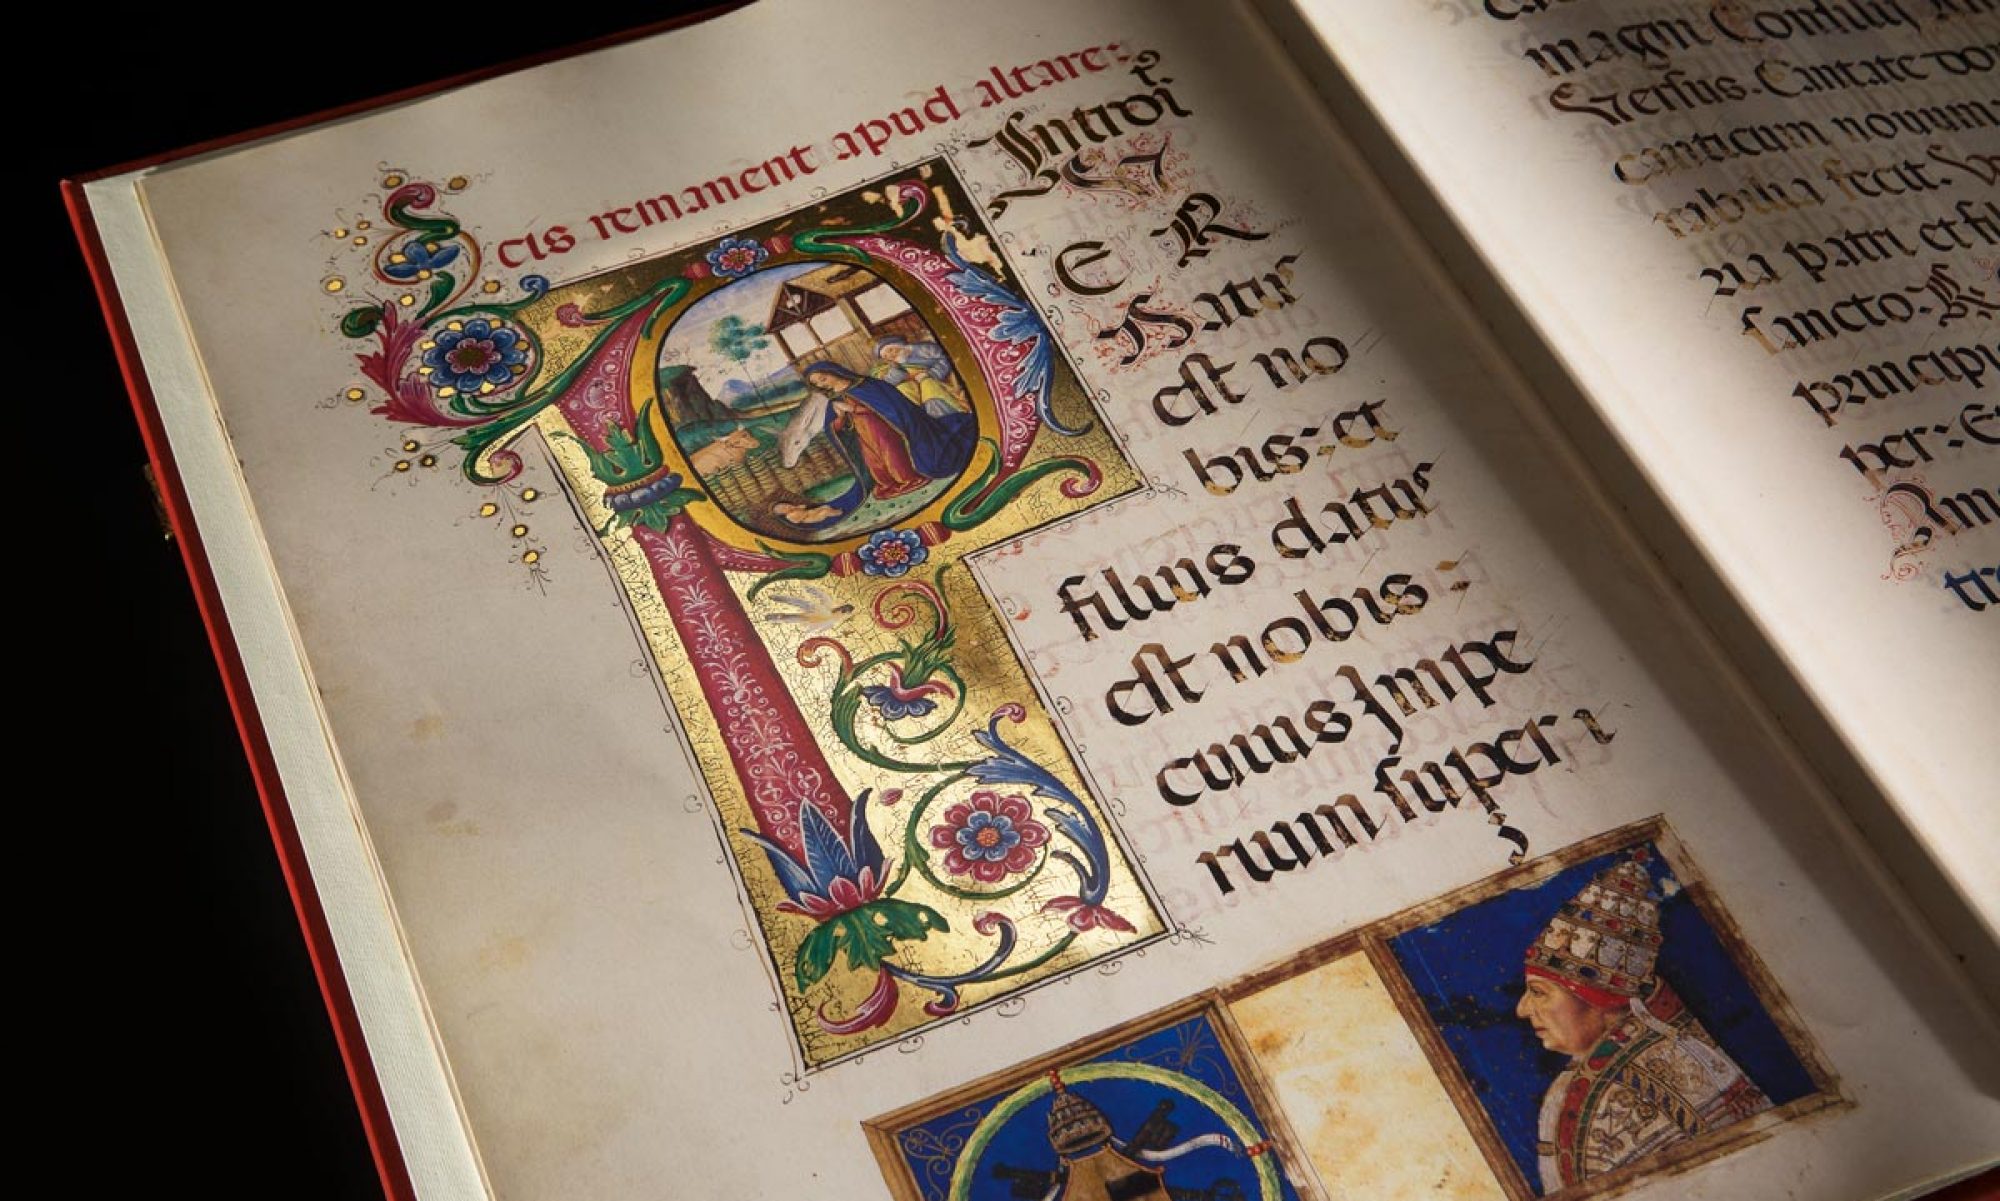 cis remanent apud altare:
Introit.
P V
E R
Natus
est no
bis: et
filius datus
est nobis:
cuius Impe
rium super
magni Consilij
Versus. Cantate do
canticum nouum
rabilia fecit.
ria patri et fi
sancto.
principi
per: